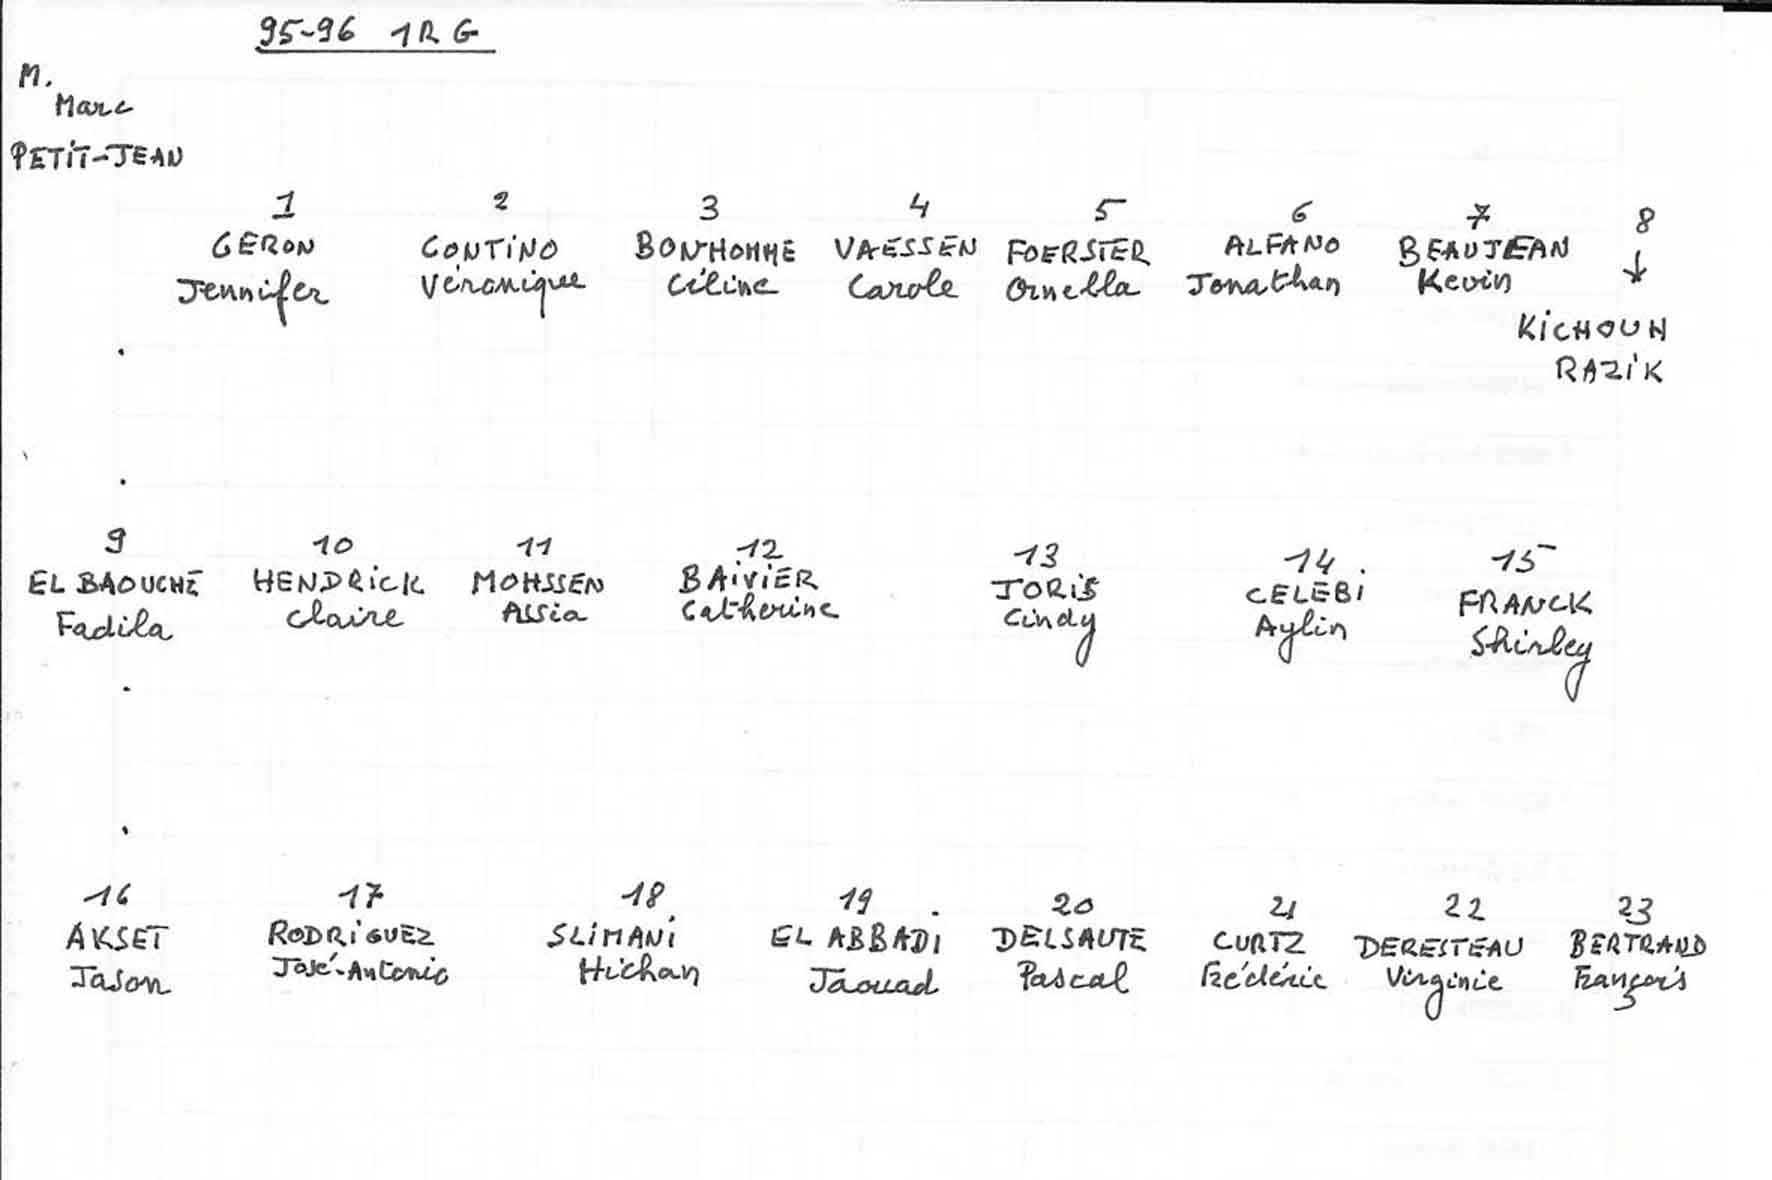 95-96 1R G
M.
Marc
PETIT-JEAN
1 2 3 4 5 6 7 8
GERON CONTINO BONHOMME VAESSEN FOERSTER ALFANO BEAUJEAN ↓
Jennifer Véronique Céline Carole Ornella Jonathan Kevin
KICHOUH
RAZIK
9 10 11 12 13 14 15
EL BAOUCHE HENDRICK MOHSSEN BAIVIER JORIS CELEBI FRANCK
Fadila Claire Assia Catherine Cindy Aylin Shirley
16 17 18 19 20 21 22 23
AKSET RODRIGUEZ SLIMANI EL ABBADI DELSAUTE CURTZ DERESTEAU BERTRAND
Jason José-Antonio Hichan Jaouad Pascal Frédéric Virginie François